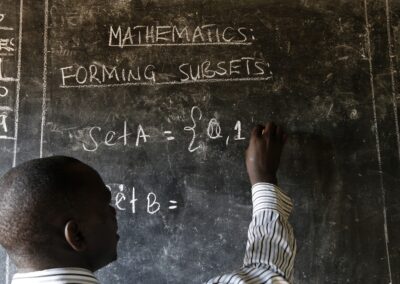 MATHEMATICS:
FORMING SUBSETS:
Set A = { 0, 1
Set B =